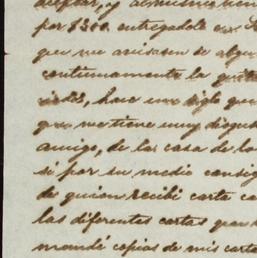 aceptar, y asimismo
por $300. entregadole en
que me avisasen de algu
continuamente la
hace un siglo que
que me tiene muy disgus
amigo, de los casa de los
si por su medio consig
de quien recibi carta co
las diferentes cartas que
mandé copias de mis carta